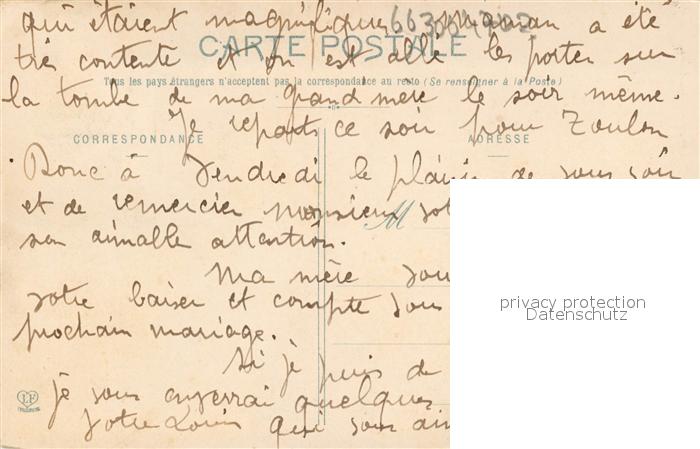 qui étaient magnifiques maman a été
6630047002
CARTE POSTALE
très contente et on est allé les porter sur
Tous les pays étrangers n'acceptent pas la correspondance au recto (Se renseigner à la Poste)
la tombe de ma grand mère le soir même.
Je repars ce soir pour Toulon
CORRESPONDANCE
ADRESSE
Donc à Vendredi le plaisir de vous voir
et de remercier monsieur vot
M
son aimable attention.
Ma mère vou
votre baiser et compte sur
prochain mariage.
Si je puis de
je vous enverrai quelques
votre Louis qui vous aim
LF
privacy protection
Datenschutz